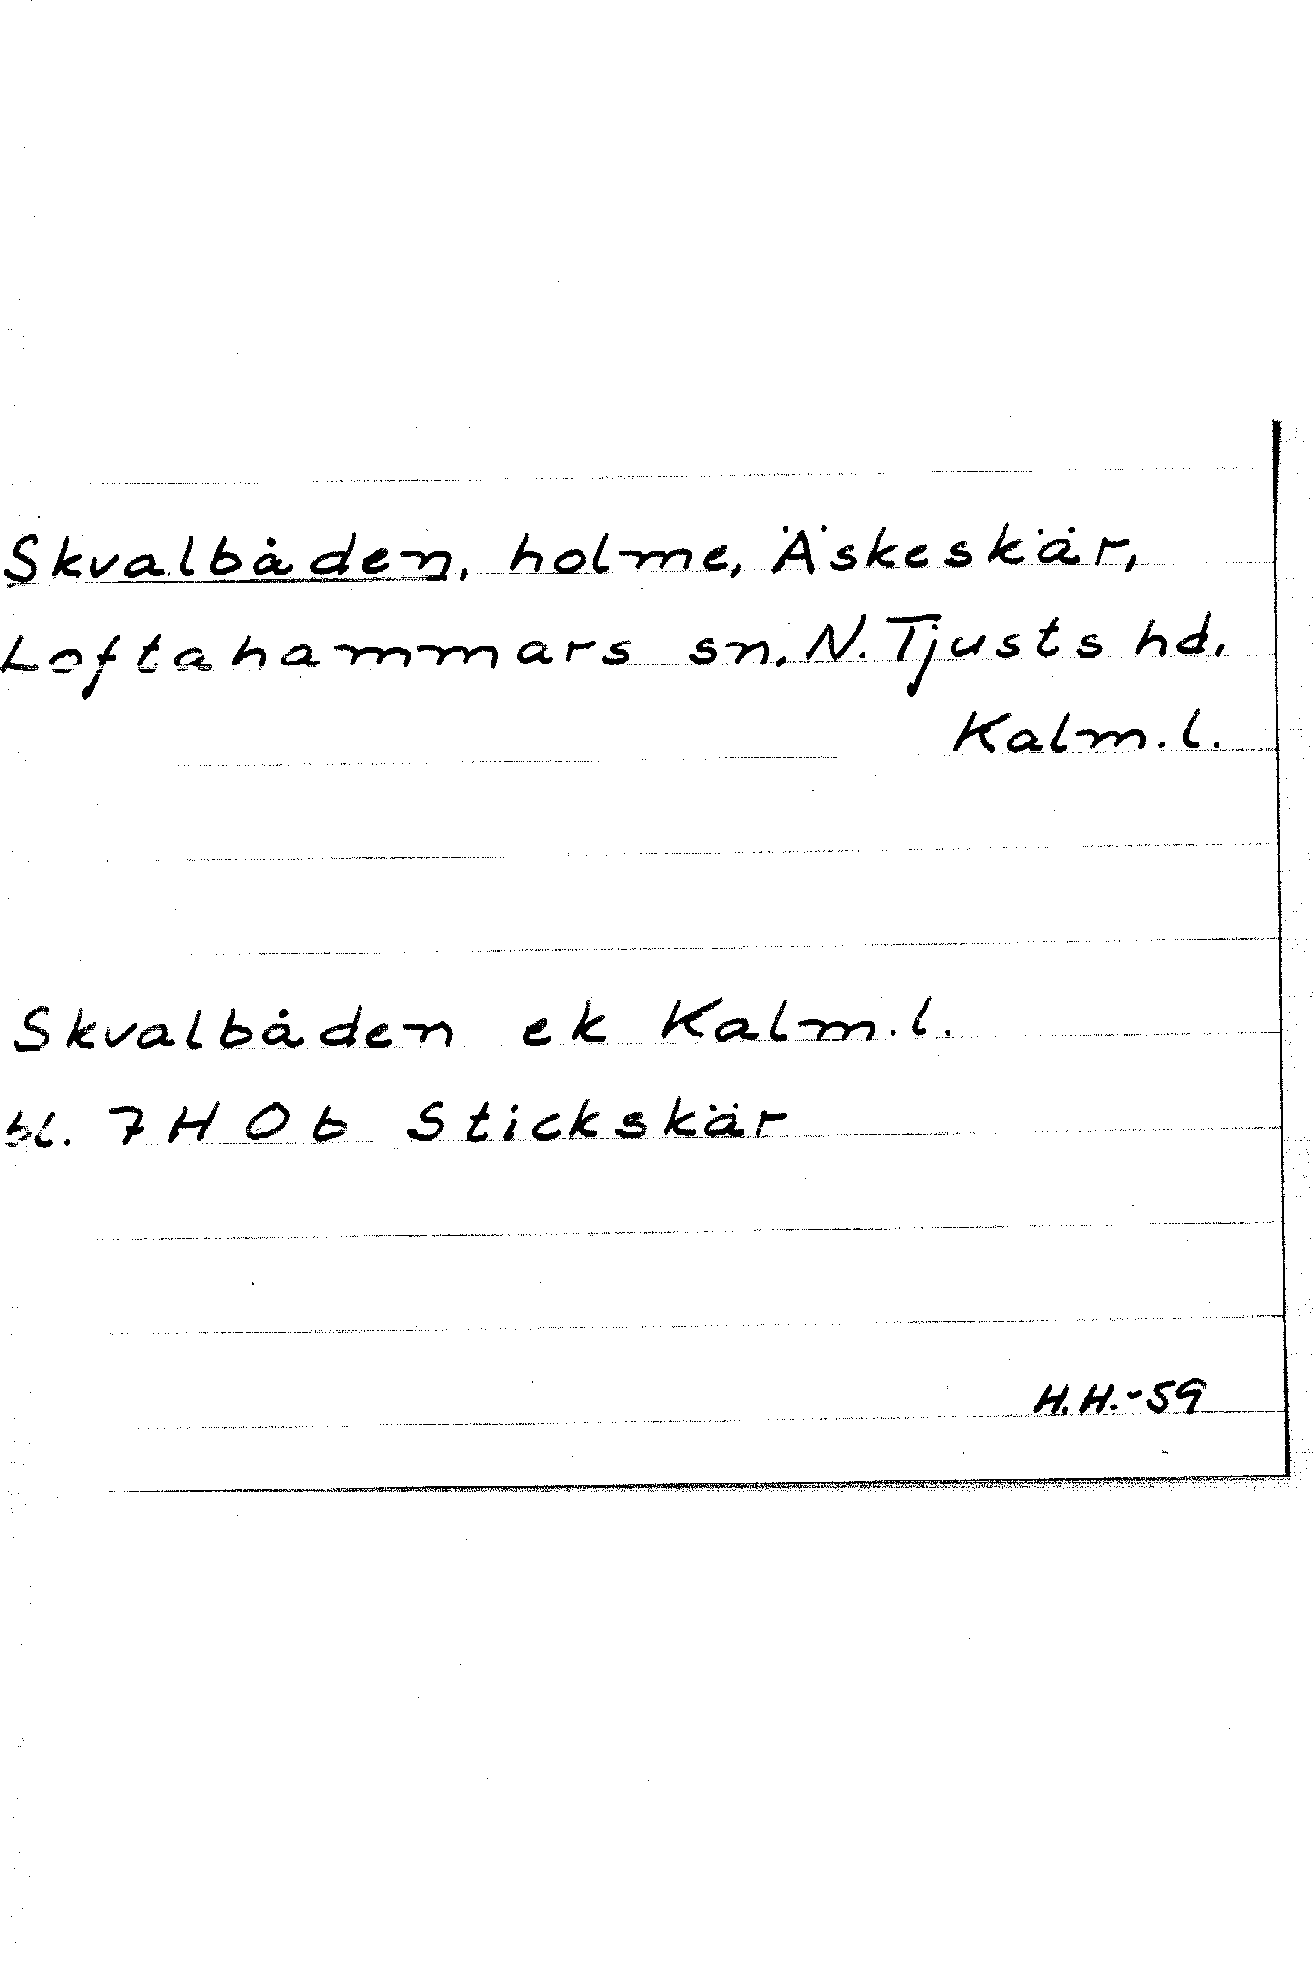 Skvalbåden, holme, Äskeskär,
Loftahammars sn, N. Tjusts hd.
Kalm. l.
Skvalbåden ek Kalm. l.
bl. 7 H 0 b Stickskär
H.H.-59